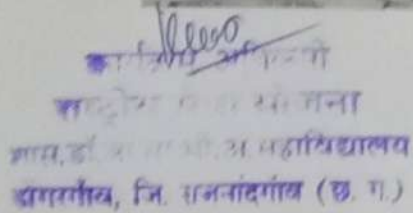 कार्यक्रम अधिकारी
राष्ट्रीय सेवा योजना
शास. डॉ. महाविद्यालय
डोंगरगाँव, जि. राजनांदगांव (छ. ग.)